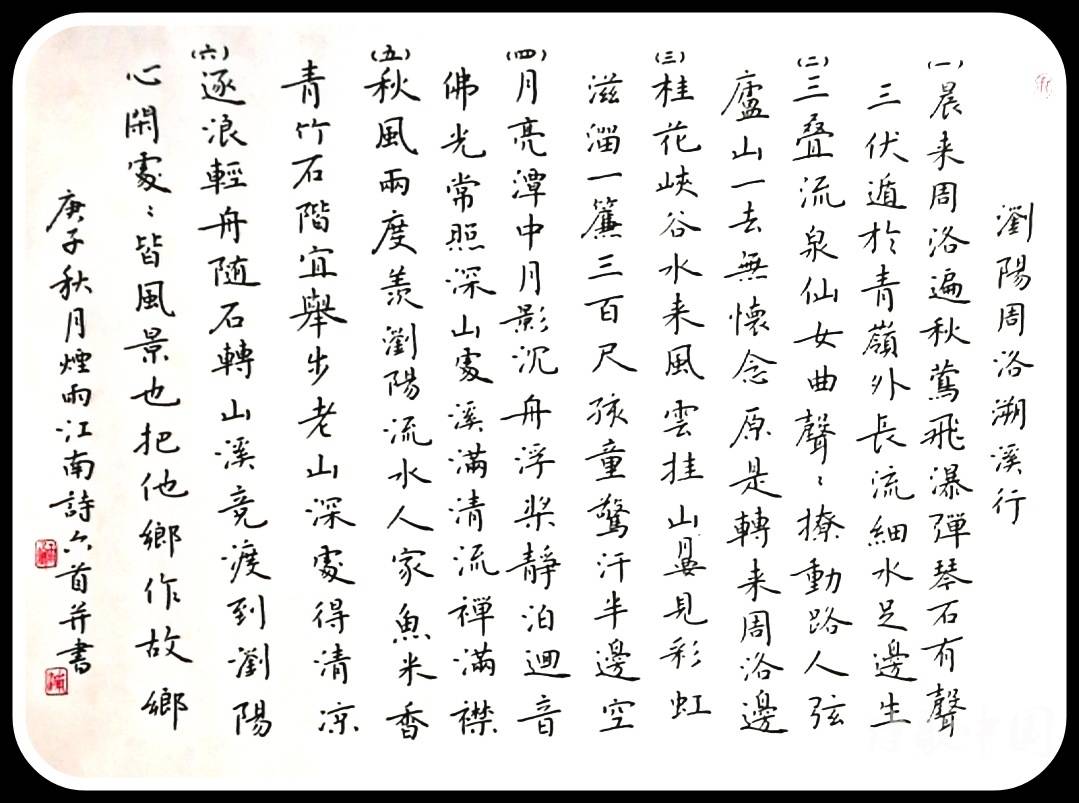 瀏陽周洛溯溪行
(一)晨来周洛遍秋鶯飛瀑彈琴石有聲
三伏遁於青嶺外長流細水足邊生
(二)三叠流泉仙女曲聲：撩動路人弦
廬山一去無懷念原是轉来周洛邊
(三)桂花峽谷水来風雲挂山晏見彩虹
滋溜一簾三百尺孩童驚汗半邊空
(四)月亮潭中月影沉舟浮槳靜泊迴音
佛光常照深山處溪滿清流禪滿襟
(五)秋風兩度羨瀏陽流水人家魚米香
青竹石階宜舉步老山深處得清凉
(六)逐浪輕舟随石轉山溪竞渡到瀏陽
心閑處：皆風景也把他鄉作故鄉
庚子秋月煙雨江南詩六首并書